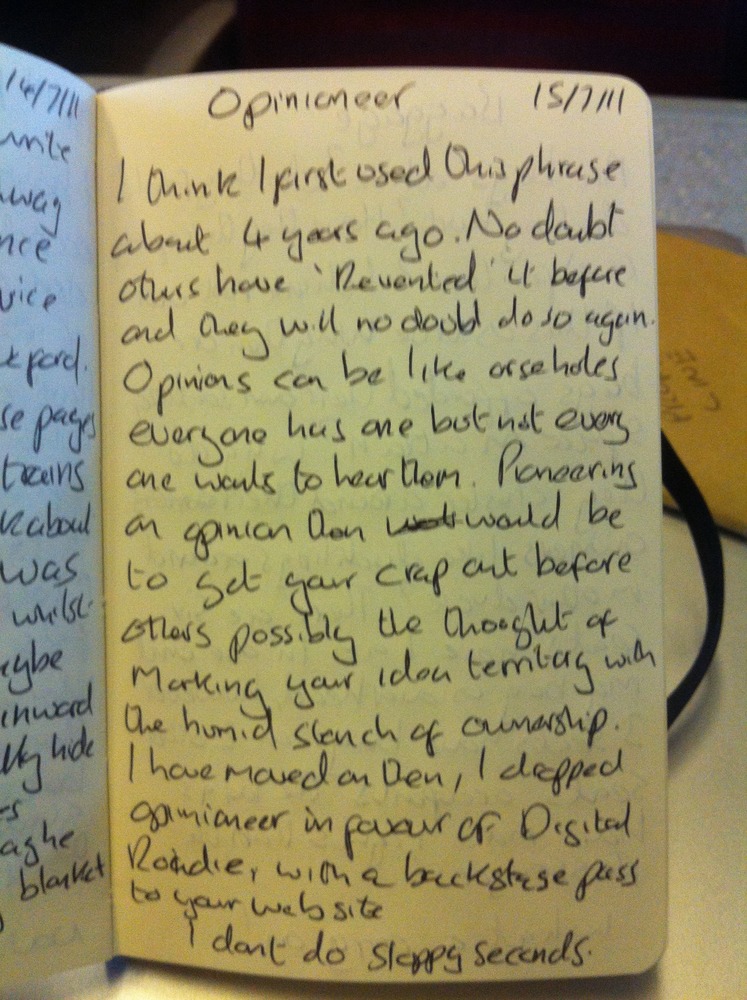 14/7/11
write
way
nce
vice
se pages
trains
about
was
whilst
inward
hide
blanket
Opinioneer 15/7/11
I think I first used this phrase
about 4 years ago. No doubt
others have 'Revented' it before
and they will no doubt do so again.
Opinions can be like arseholes
everyone has one but not every
one wants to hear them. Pioneering
an opinion then would be
to get your crap out before
others possibly the thought of
Marking your idea territory with
the humid stench of ownership.
I have moved on then, I dropped
opinioneer in favour of Digital
Roadie, with a backstage pass
to your website
I dont do sloppy seconds.